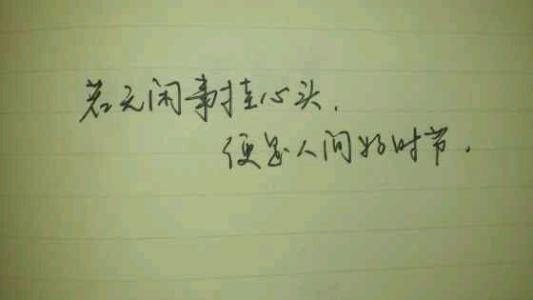 若无闲事挂心头,
便是人间好时节.